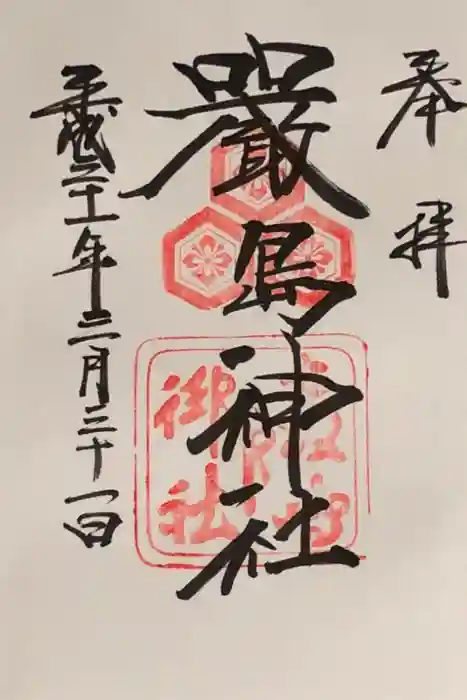 奉拝
嚴島神社
平成三十一年三月三十一日
御社